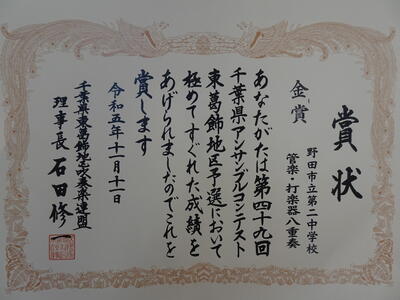 賞状
野田市立第二中学校
管楽・打楽器八重奏
金賞
あなたがたは第四十九回
千葉県アンサンブルコンテスト
東葛飾地区予選において
極めてすぐれた成績を
あげられましたのでこれを
賞します
令和五年十一月十一日
千葉県東葛飾地区吹奏楽連盟
理事長 石田修